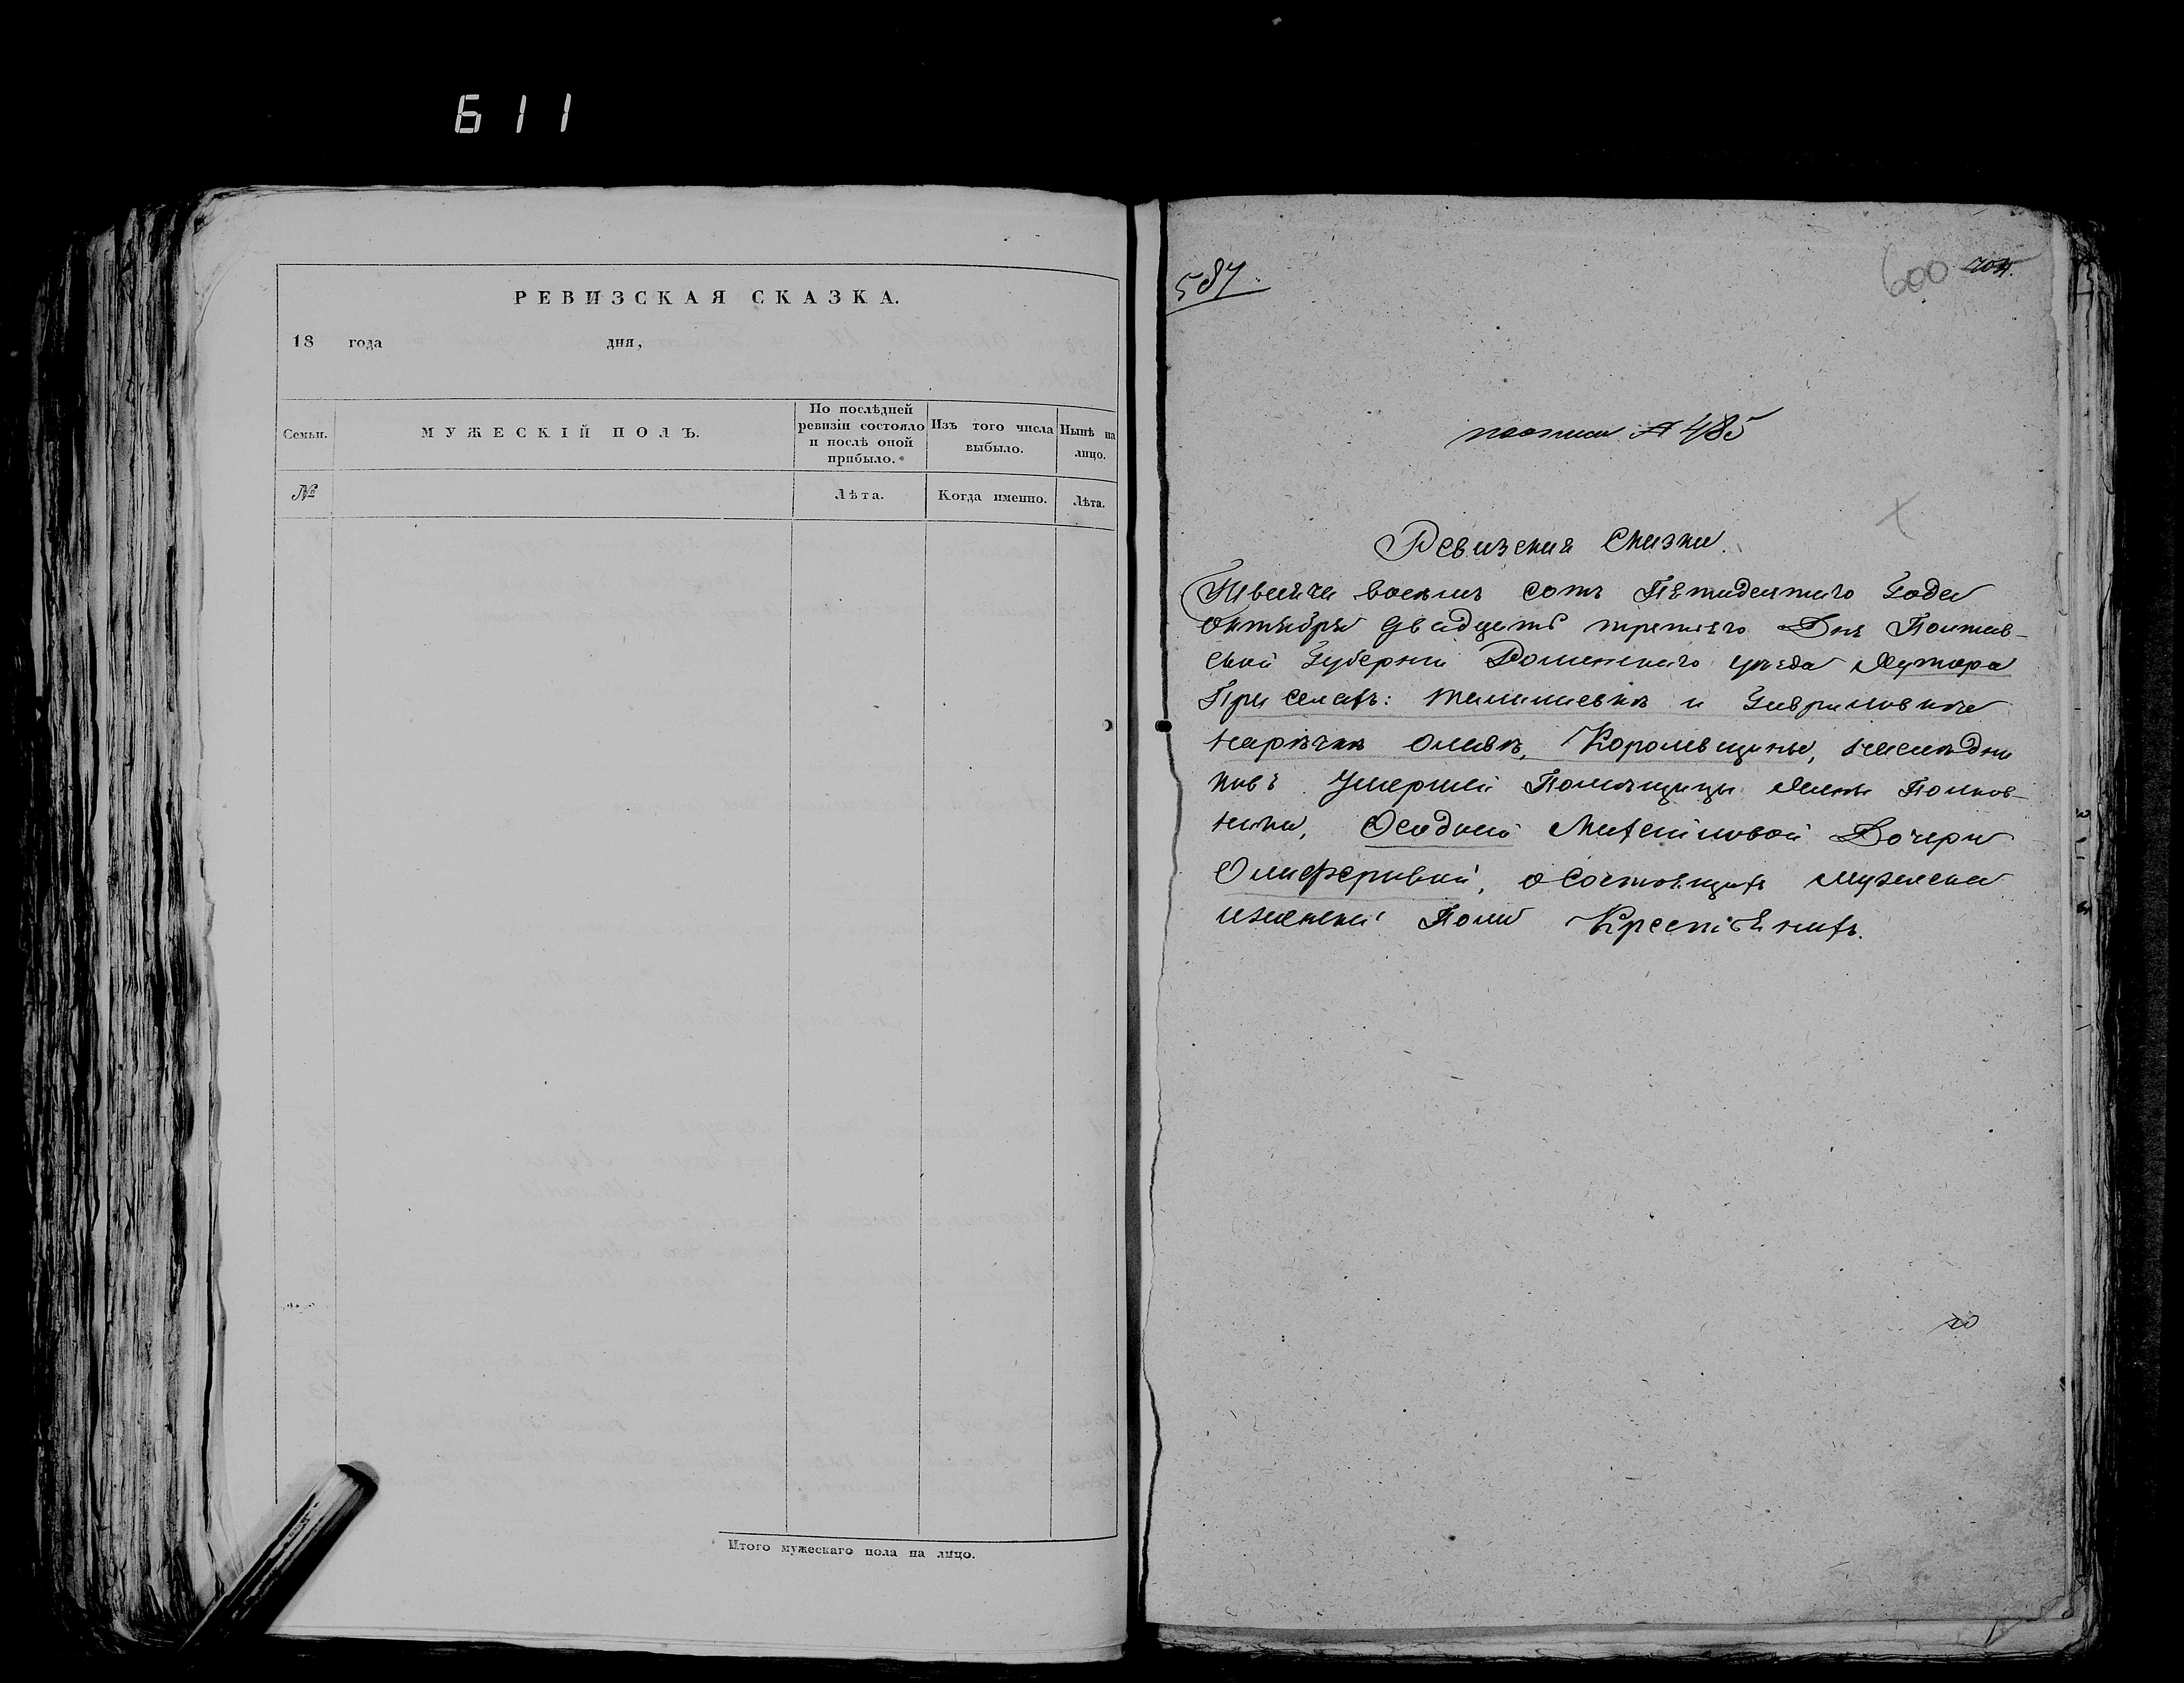 611
РЕВИЗСКАЯ СКАЗКА.
18 года дня,
Семьи.
МУЖЕСКІЙ ПОЛЪ.
По послѣдней ревизіи состояло и послѣ оной прибыло.
Изъ того числа выбыло.
Нынѣ на лицо.
№
Лѣта.
Когда именно.
Лѣта.
Итого мужескаго пола на лицо.
587.
600
485
Ревизская Сказка.
Тысяча восемь сотъ Пятидесятаго Года
Октября двадцать третьяго Дня Полтав-
ской Губерніи Роменскаго уѣзда Хутора
При селахъ: и Гавриловке
Королевщины, наслѣдни
ковъ Умершей Помѣщицы Полков-
ника, Дочери
о состоящихъ мужеска
иженска Пола Крестьянахъ.